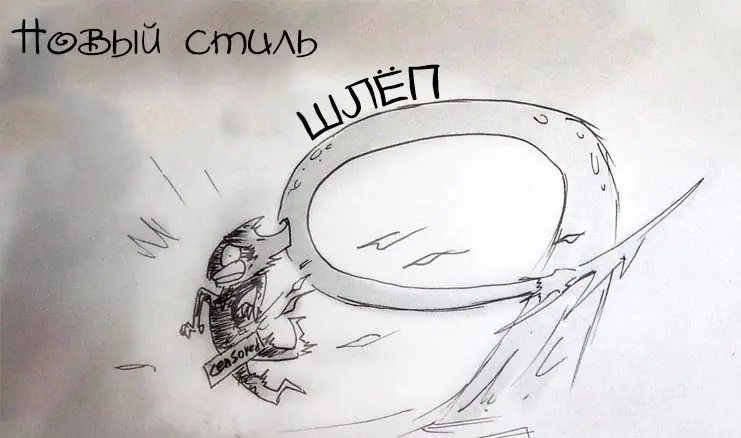 Новый стиль
ШЛЁП
censored